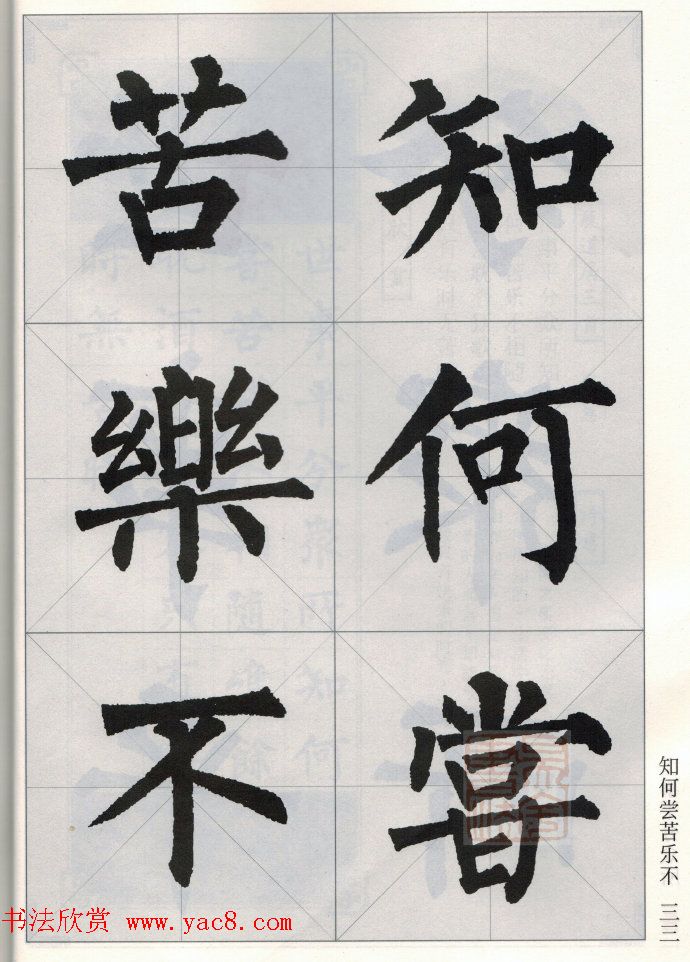 知何嘗
苦樂不
知何尝苦乐不 三三
书法欣赏 www.yac8.com